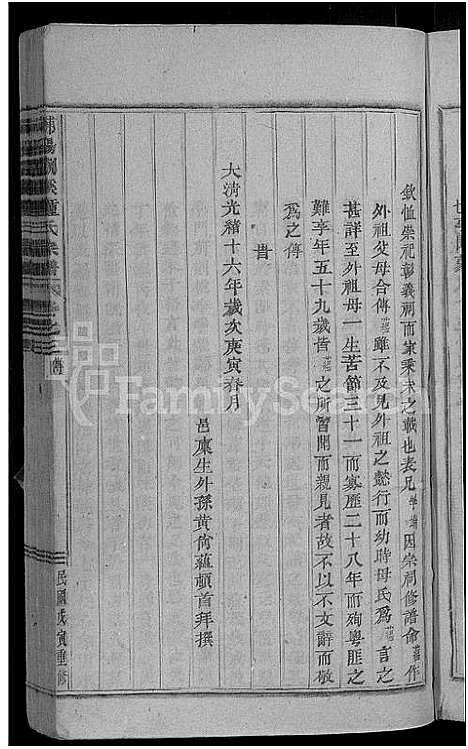 欽恤崇祀彰義祠而家乘未之載也表兄因宗祠修譜命蘊作
外祖父母合傳蘊雖不及見外祖之懿行而幼時母氏爲蘊言之
甚詳至外祖母一生苦節三十一而寡歷二十八年而殉粵匪之
難享年五十九歲皆蘊之所習聞而親見者故不以不文辭而敬
爲之傳
旹
大清光緒十六年歲次庚寅春月
邑廩生外孫黃尙蘊頓首拜撰
鍾氏宗譜卷之三 傳
民國戊寅重修
FamilySearch